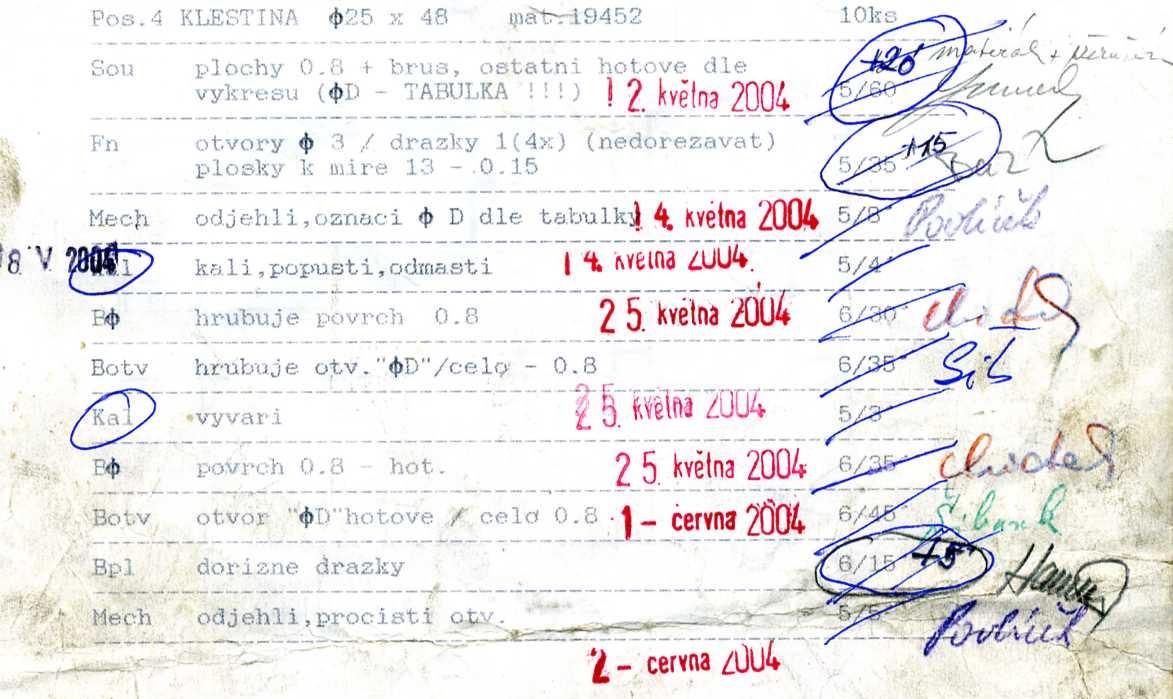 Pos.4 KLESTINA ϕ25 x 48 mat.19452 10ks
Sou plochy 0.8 + brus, ostatni hotove dle +20 materiál +
vykresu (ϕD - TABULKA !!!) 12. května 2004 5/60
Fn otvory ϕ 3 / drazky 1(4x) (nedorezavat) +15
plosky k mire 13 - 0.15 5/35
Mech odjehli,oznaci ϕ D dle tabulky 14. května 2004 5/8
18 V 2004 Kal kali,popusti,odmasti 14. května 2004 5/4
Bϕ hrubuje povrch 0.8 25. května 2004 6/30
Botv hrubuje otv."ϕD"/celo - 0.8 6/35
Kal vyvari 25. května 2004 5/3
Bϕ povrch 0.8 - hot. 25. května 2004 6/35
Botv otvor "ϕD"hotove / celo 0.8 1 - června 2004 6/45
Bpl dorizne drazky 6/15 +5
Mech odjehli,procisti otv. 5/5
2 - června 2004